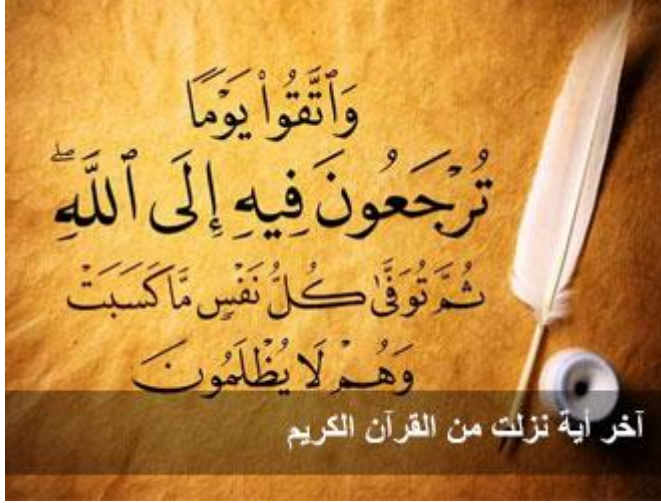 وَٱتَّقُوا۟ يَوْمًا
تُرْجَعُونَ فِيهِ إِلَى ٱللَّهِ ۖ
ثُمَّ تُوَفَّىٰ كُلُّ نَفْسٍ مَّا كَسَبَتْ
وَهُمْ لَا يُظْلَمُونَ
آخر أية نزلت من القرآن الكريم